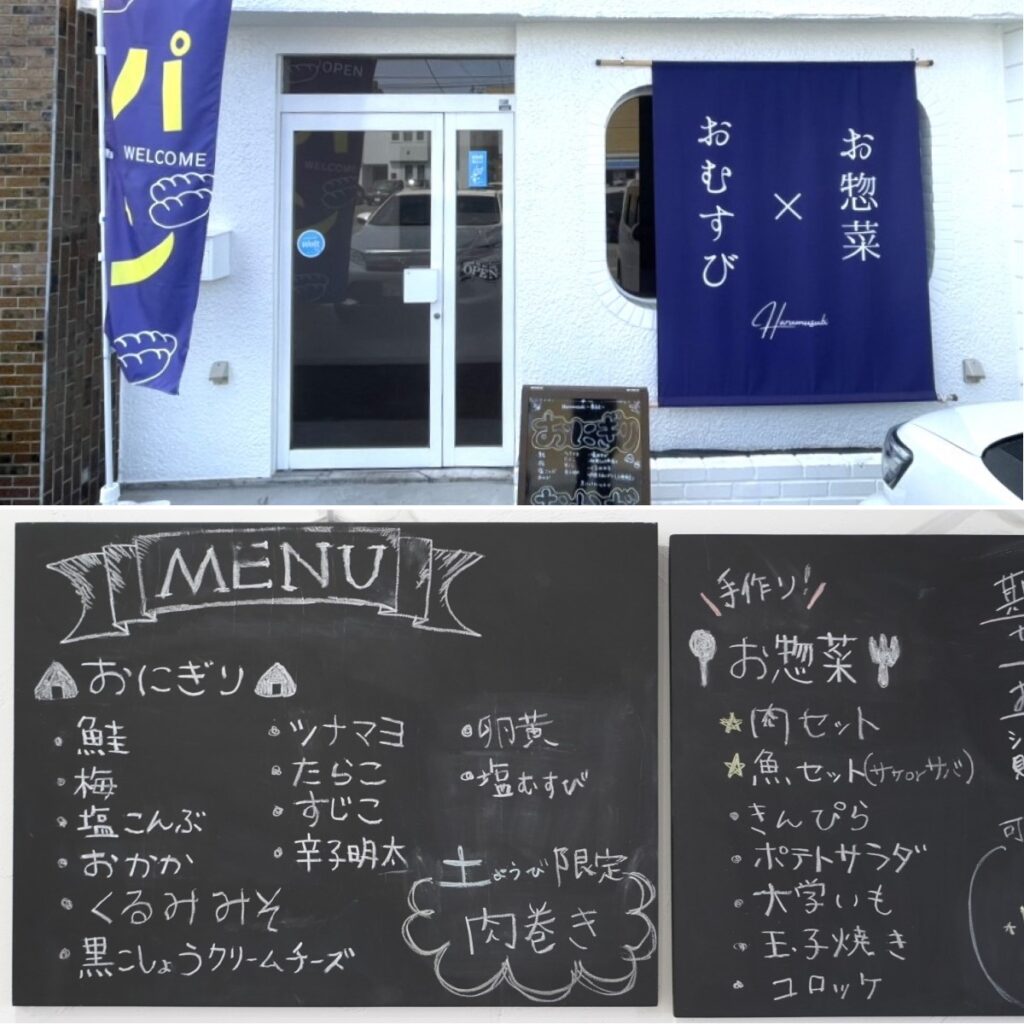 パ
WELCOME
ン
OPEN
OPEN
お惣菜
×
おむすび
Hanamusubi
おにぎり
MENU
おにぎり
・鮭
・梅
・塩こんぶ
・おかか
・くるみみそ
・黒こしょうクリームチーズ
・ツナマヨ
・たらこ
・すじこ
・辛子明太
・卵黄
・塩むすび
土ようび限定
肉巻き
手作り!
お惣菜
☆肉セット
☆魚セット(サケorサバ)
・きんぴら
・ポテトサラダ
・大学いも
・玉子焼き
・コロッケ